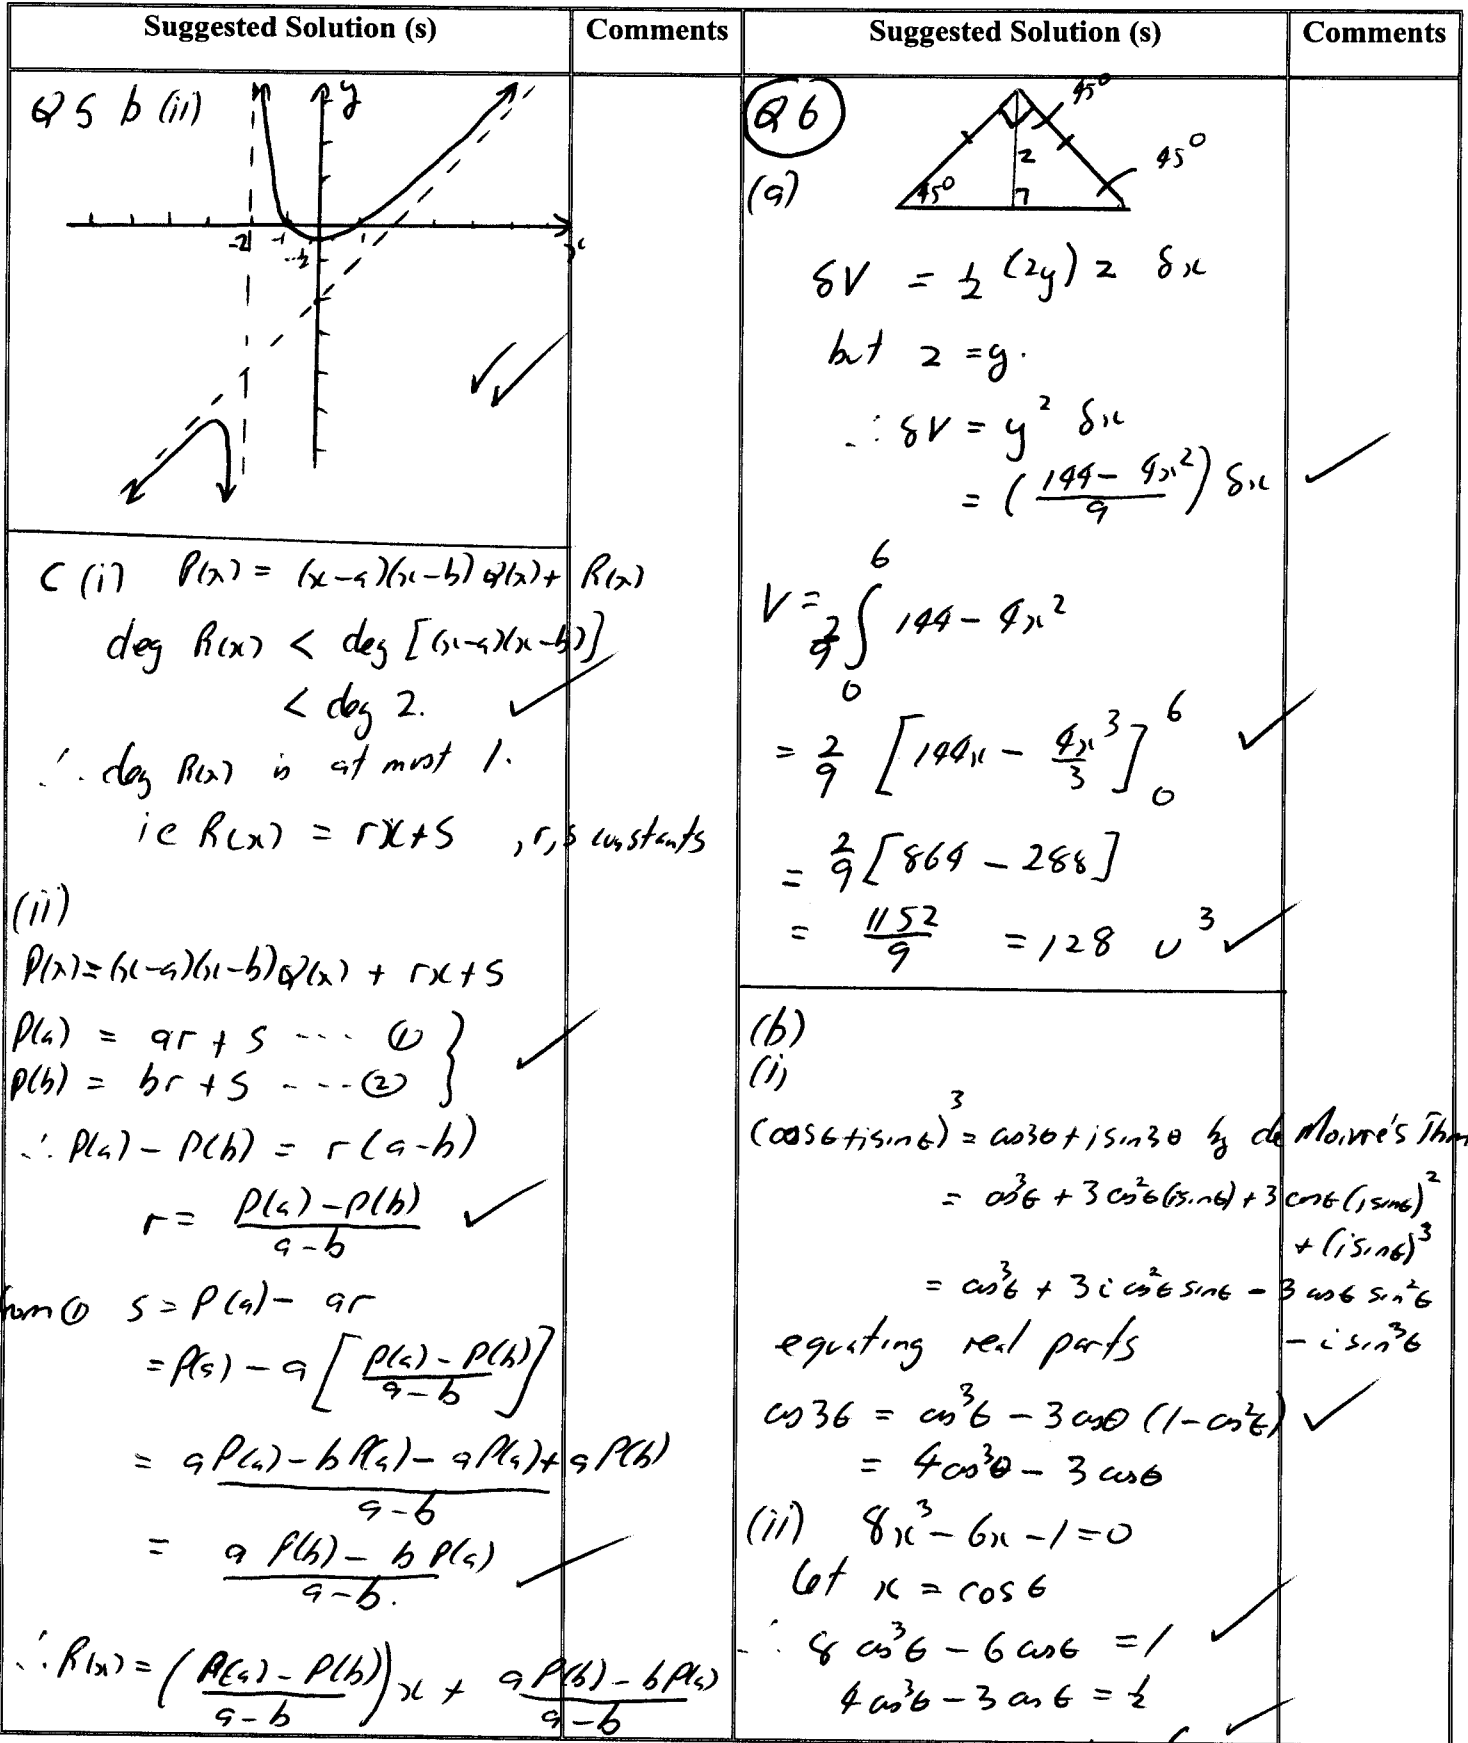 Suggested Solution (s)
Comments
Q5 b (ii)
y
x
-2
-1
-½
C (i) P(x) = (x-a)(x-b)Q(x) + R(x)
deg R(x) < deg [(x-a)(x-b)]
< deg 2.
∴ deg R(x) is at most 1.
ie R(x) = rx+s , r, s constants
(ii)
P(x) = (x-a)(x-b)Q(x) + rx + s
P(a) = ar + s --- ①
P(b) = br + s --- ②
∴ P(a) - P(b) = r(a-b)
r = P(a) - P(b)
a-b
from ① s = P(a) - ar
= P(a) - a [P(a) - P(b)]
a-b
= aP(a) - bP(a) - aP(a) + aP(b)
a-b
= aP(b) - bP(a)
a-b.
∴ R(x) = (P(a) - P(b))x + aP(b) - bP(a)
a-b a-b
Suggested Solution (s)
Comments
Q6
45°
(a)
z
45°
45°
δV = ½ (2y) z δx
but z = y.
∴ δV = y² δx
= (144 - 4x²) δx
9
6
V = 2/9 ∫ 144 - 4x²
0
= 2/9 [144x - 4x³/3]⁶₀
= 2/9 [864 - 288]
= 1152/9 = 128 u³
(b)
(i)
(cosθ + i sinθ)³ = cos3θ + i sin3θ by de Moivre's Thm
= cos³θ + 3cos²θ(i sinθ) + 3cosθ(i sinθ)²
+ (i sinθ)³
= cos³θ + 3i cos²θ sinθ - 3cosθ sin²θ
equating real parts - i sin³θ
cos3θ = cos³θ - 3cosθ (1-cos²θ)
= 4cos³θ - 3cosθ
(ii) 8x³ - 6x - 1 = 0
Let x = cosθ
∴ 8cos³θ - 6cosθ = 1
4cos³θ - 3cosθ = ½